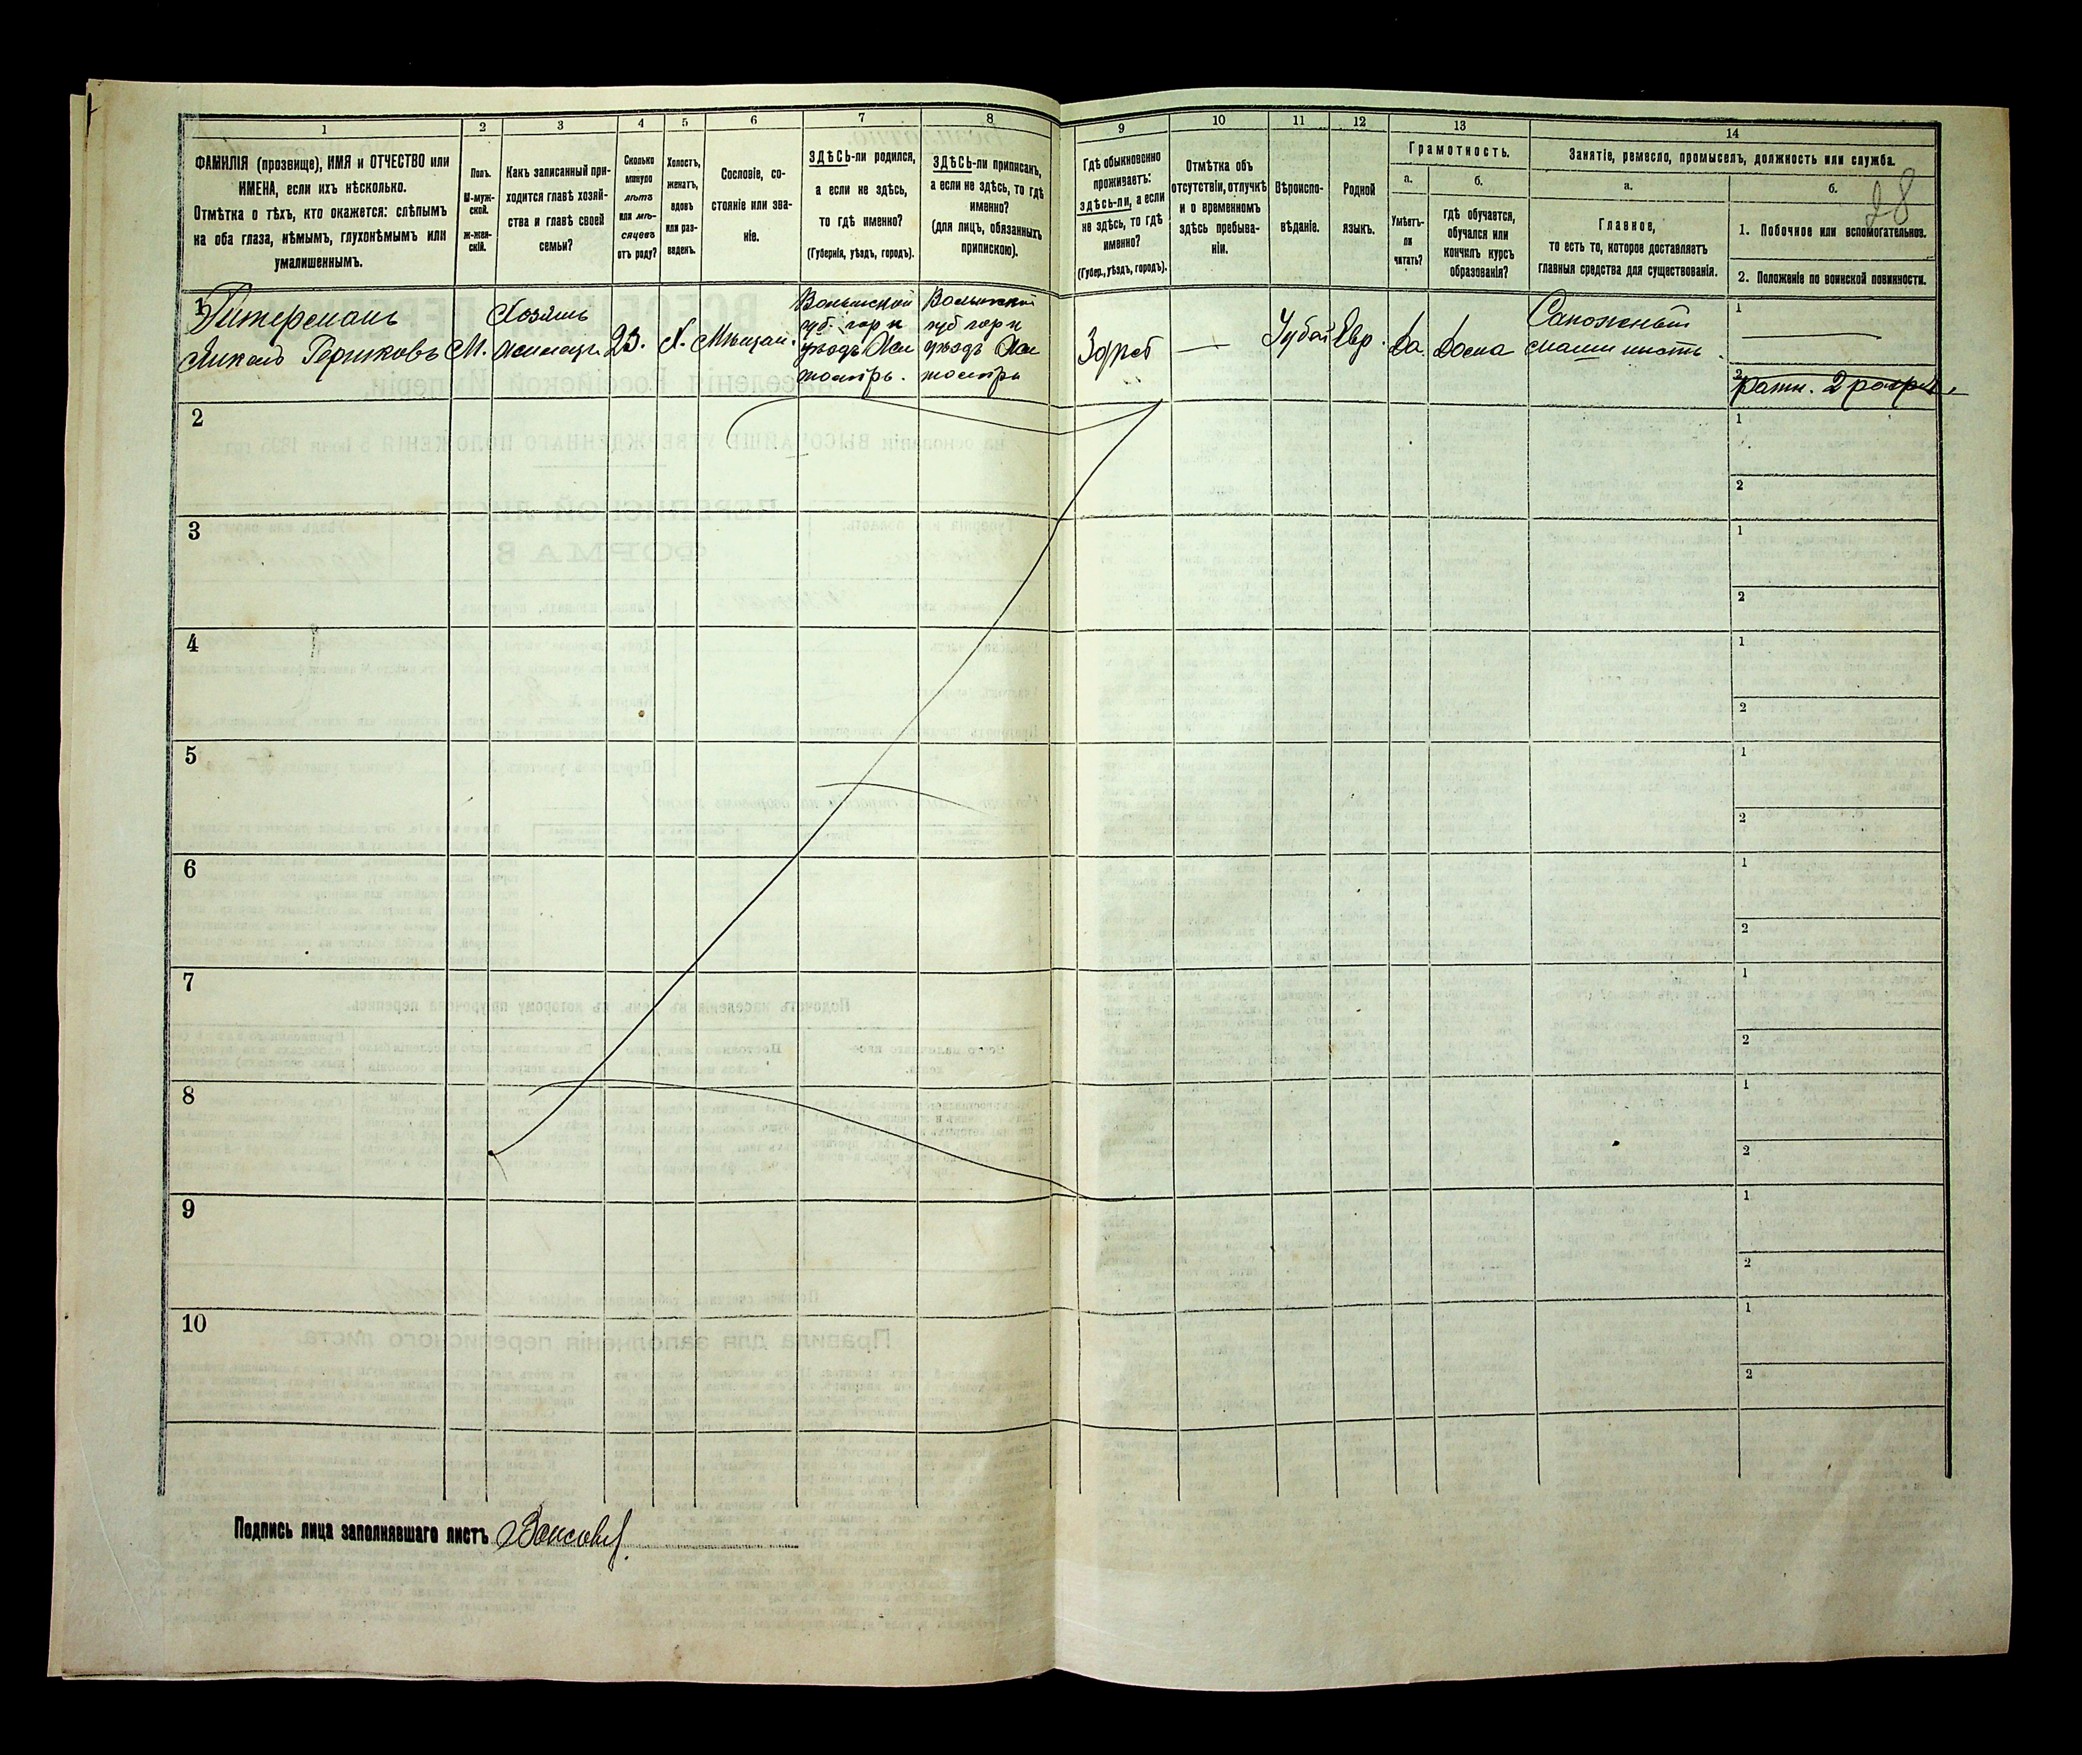 1
2
3
4
5
6
7
8
9
10
11
12
13
14
ФАМИЛІЯ (прозвище), ИМЯ и ОТЧЕСТВО или
ИМЕНА, если ихъ нѣсколько.
Отмѣтка о тѣхъ, кто окажется: слѣпымъ
на оба глаза, нѣмымъ, глухонѣмымъ или
умалишеннымъ.
Полъ.
М-муж-
ской.
ж-жен-
скій.
Какъ записанный при-
ходится главѣ хозяй-
ства и главѣ своей
семьи?
Сколько
минуло
лѣтъ
или мѣ-
сяцевъ
отъ роду?
Холостъ,
женатъ,
вдовъ
или раз-
веденъ.
Сословіе, со-
стояніе или зва-
ніе.
ЗДѢСЬ-ли родился,
а если не здѣсь,
то гдѣ именно?
(Губернія, уѣздъ, городъ).
ЗДѢСЬ-ли приписанъ,
а если не здѣсь, то гдѣ
именно?
(для лицъ, обязанныхъ
припискою).
Гдѣ обыкновенно
проживаетъ:
здѣсь-ли, а если
не здѣсь, то гдѣ
именно?
(Губер., уѣздъ, городъ).
Отмѣтка объ
отсутствіи, отлучкѣ
и о временномъ
здѣсь пребыва-
ніи.
Вѣроиспо-
вѣданіе.
Родной
языкъ.
Грамотность.
а.
Умѣетъ-
ли
читать?
б.
гдѣ обучается,
обучался или
кончилъ курсъ
образованія?
Занятіе, ремесло, промыселъ, должность или служба.
а.
Главное,
то есть то, которое доставляетъ
главныя средства для существованія.
б.
28
1. Побочное или вспомогательное.
2. Положеніе по воинской повинности.
1
М.
Хозяинъ
23.
Х.
Мѣщан.
Волынской
губ. гор и
уѣздъ Жи
томіръ.
Волынской
губ гор и
уѣздъ Жи
томіръ
Здѣсь
—
Іудей
Евр.
Да.
Дома
Сапожный
машинистъ.
1
2
ратн. 2 разр.
2
1
2
3
1
2
4
1
2
5
1
2
6
1
2
7
1
2
8
1
2
9
1
2
10
1
2
Подпись лица заполнявшаго листъ